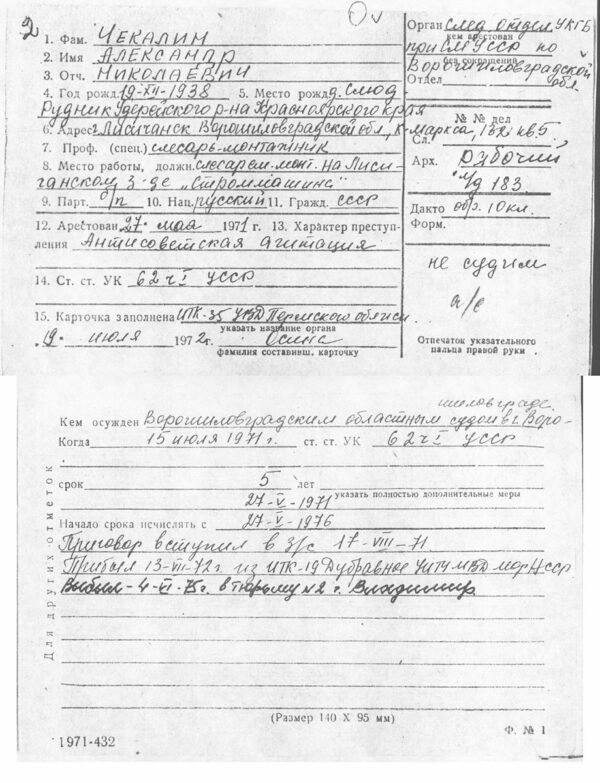 2
1. Фам. ЧЕКАЛИН
2. Имя АЛЕКСАНДР
3. Отч. НИКОЛАЕВИЧ
4. Год рожд. 19-XII-1938 5. Место рожд. д. Слюд
Рудник Удерейского р-на Красноярского края
6. Адрес г. Лисичанск Ворошиловградской обл, К-Маркса, 182 кв 5,
7. Проф. (спец.) слесарь-монтажник
8. Место работы, должн. слесарем-монт. на Лиси-
чанском з-де „Строммашина"
9. Парт. б/п 10. Нац. русский 11. Гражд. СССР
12. Арестован 27. мая 1971 г. 13. Характер преступ-
ления Антисоветская агитация
14. Ст. ст. УК 62 ч I УССР
15. Карточка заполнена ИТК-35 УВД Пермского облисп.
указать название органа
19. июля 1972 г. Осина
фамилия составивш. карточку
Орган след. отдел УКГБ
кем арестован
при СМ УССР по
без сокращений
Ворошиловградской
Отдел обл.
№ № дел
Сл.
Арх. рабочий
л/д 183
Дакто обр. 10 кл.
Форм.
не судим
а/с
Отпечаток указательного
пальца правой руки
Для других отметок
шиловграде.
Кем осужден Ворошиловградским областным судом в г. Воро-
Когда 15 июля 1971 г. ст. ст. УК 62 ч I УССР
срок 5 лет
указать полностью дополнительные меры
27-V-1971
Начало срока исчислять с 27-V-1976
Приговор вступил в з/с 17-VIII-71
Прибыл 13-VII-72 г. из ИТК-19 Дубравное УИТУ МВД Морд АССР
Выбыл-4-VI-75г. в тюрьму №2 г. Владимир
(Размер 140 X 95 мм)
1971-432
Ф. № 1